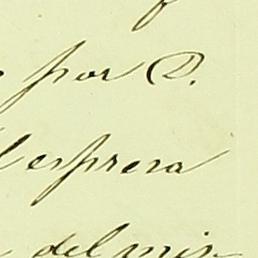 por D.
espresa
del mis-